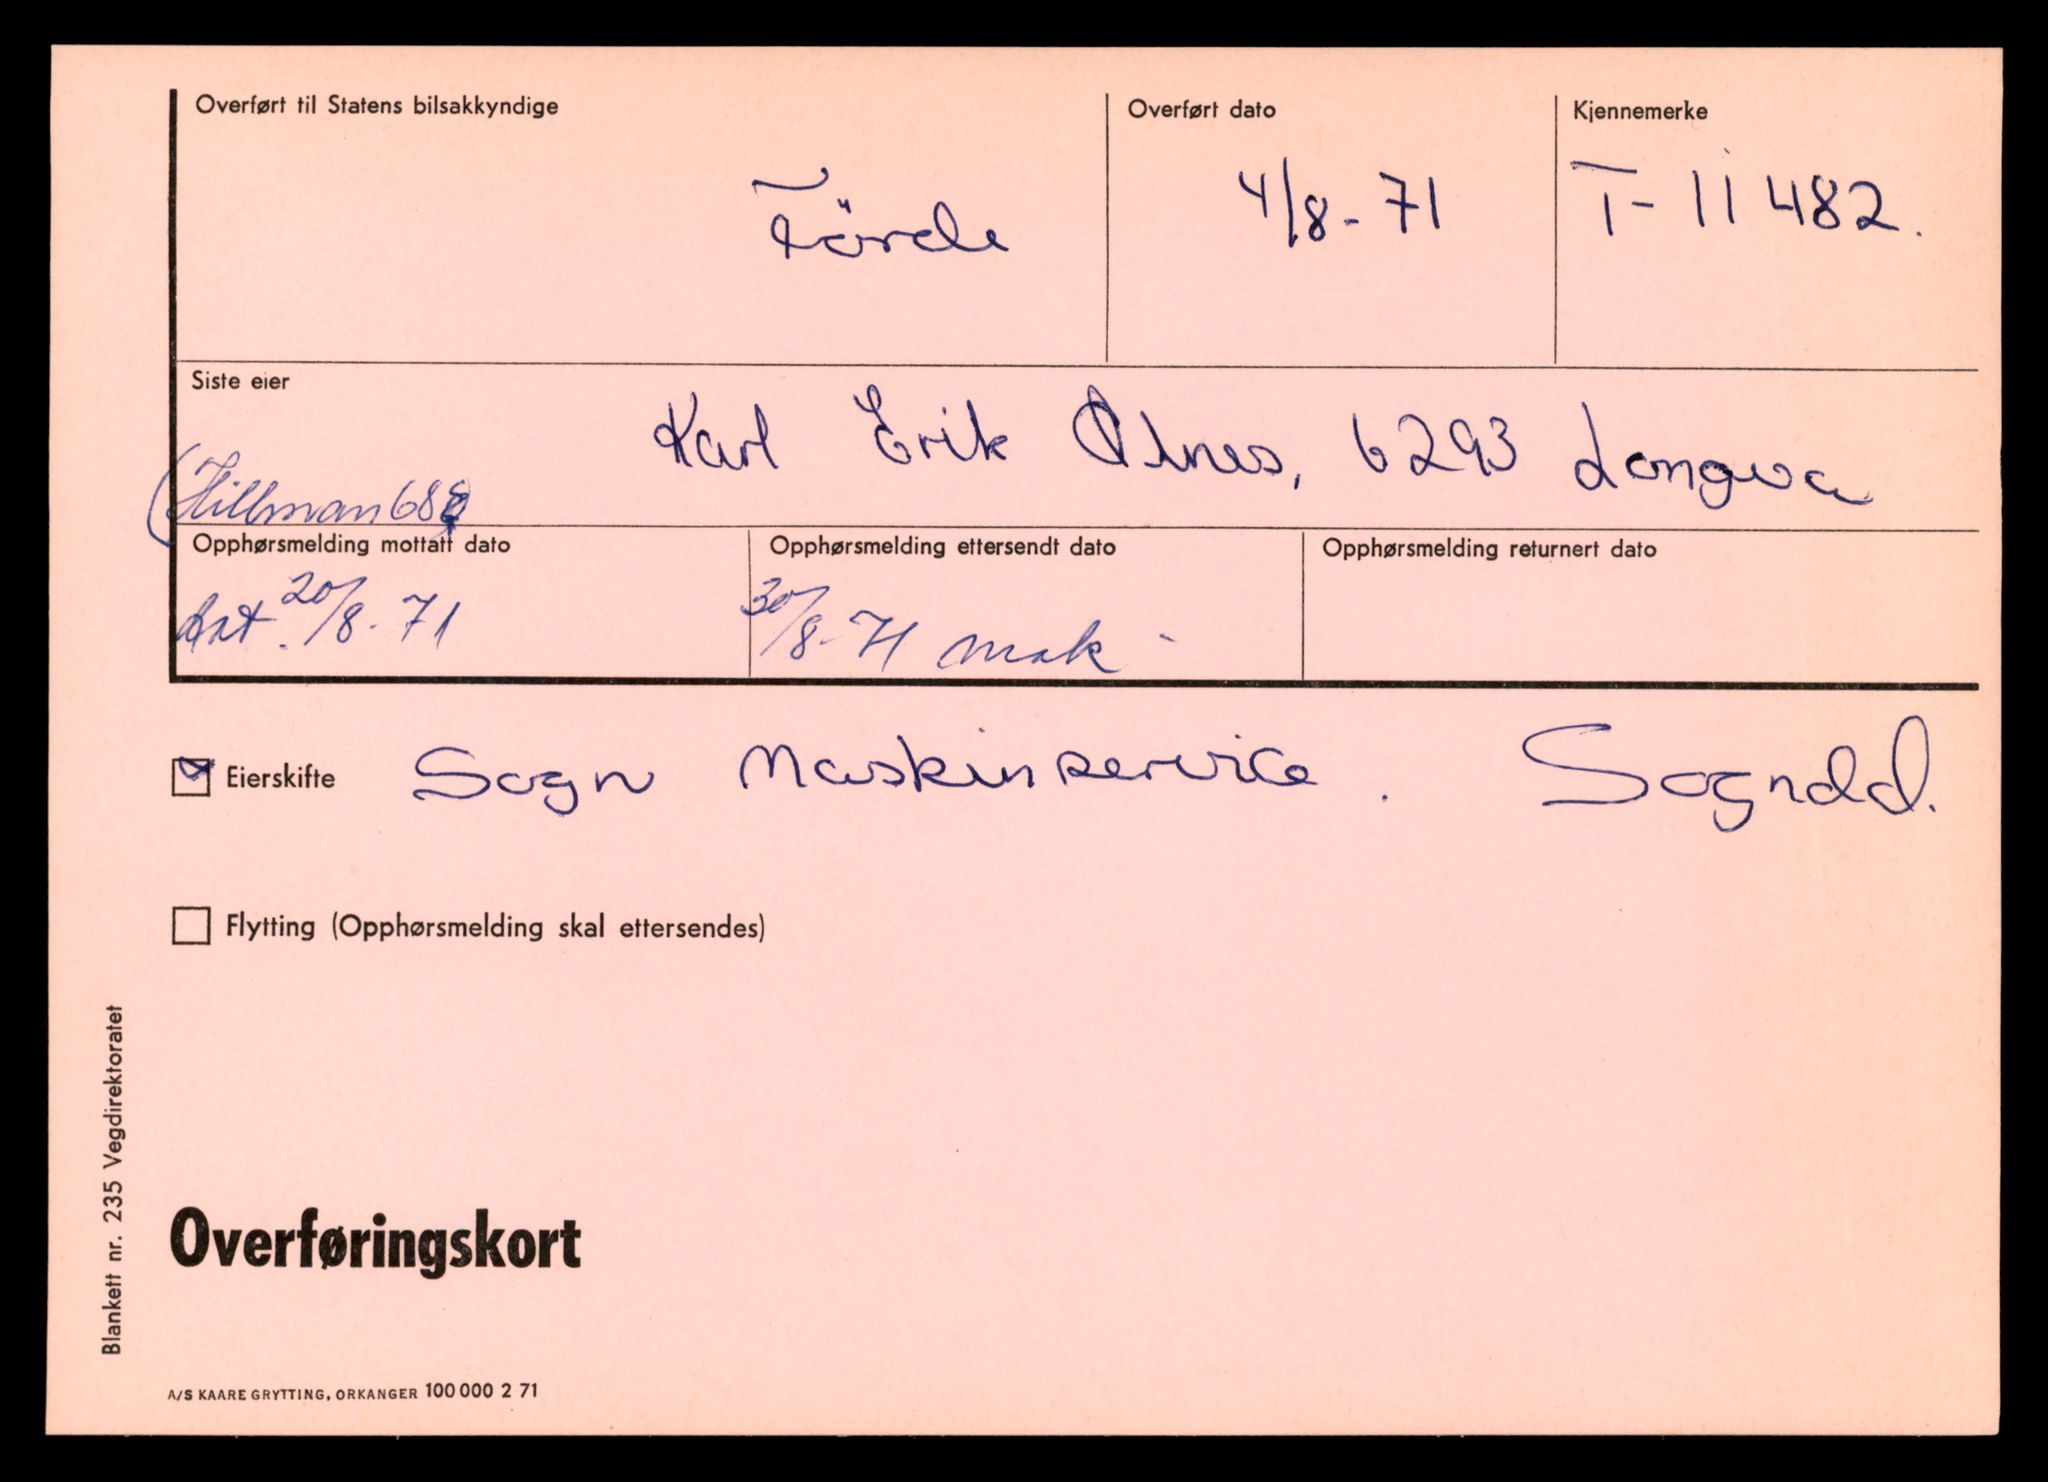 Overført til Statens bilsakkyndige
Förde
Overført dato
4/8-71
Kjennemerke
T-11482.
Siste eier
Karl Erik Alnes, 6293 Longva
(Hillman 68
Opphørsmelding mottatt dato
20/8-71
Opphørsmelding ettersendt dato
30/8-71 mak
Opphørsmelding returnert dato
Eierskifte Sogn Maskinservice. Sogndal.
Flytting (Opphørsmelding skal ettersendes)
Blankett nr. 235 Vegdirektoratet
Overføringskort
A/S KAARE GRYTTING, ORKANGER 100 000 2 71